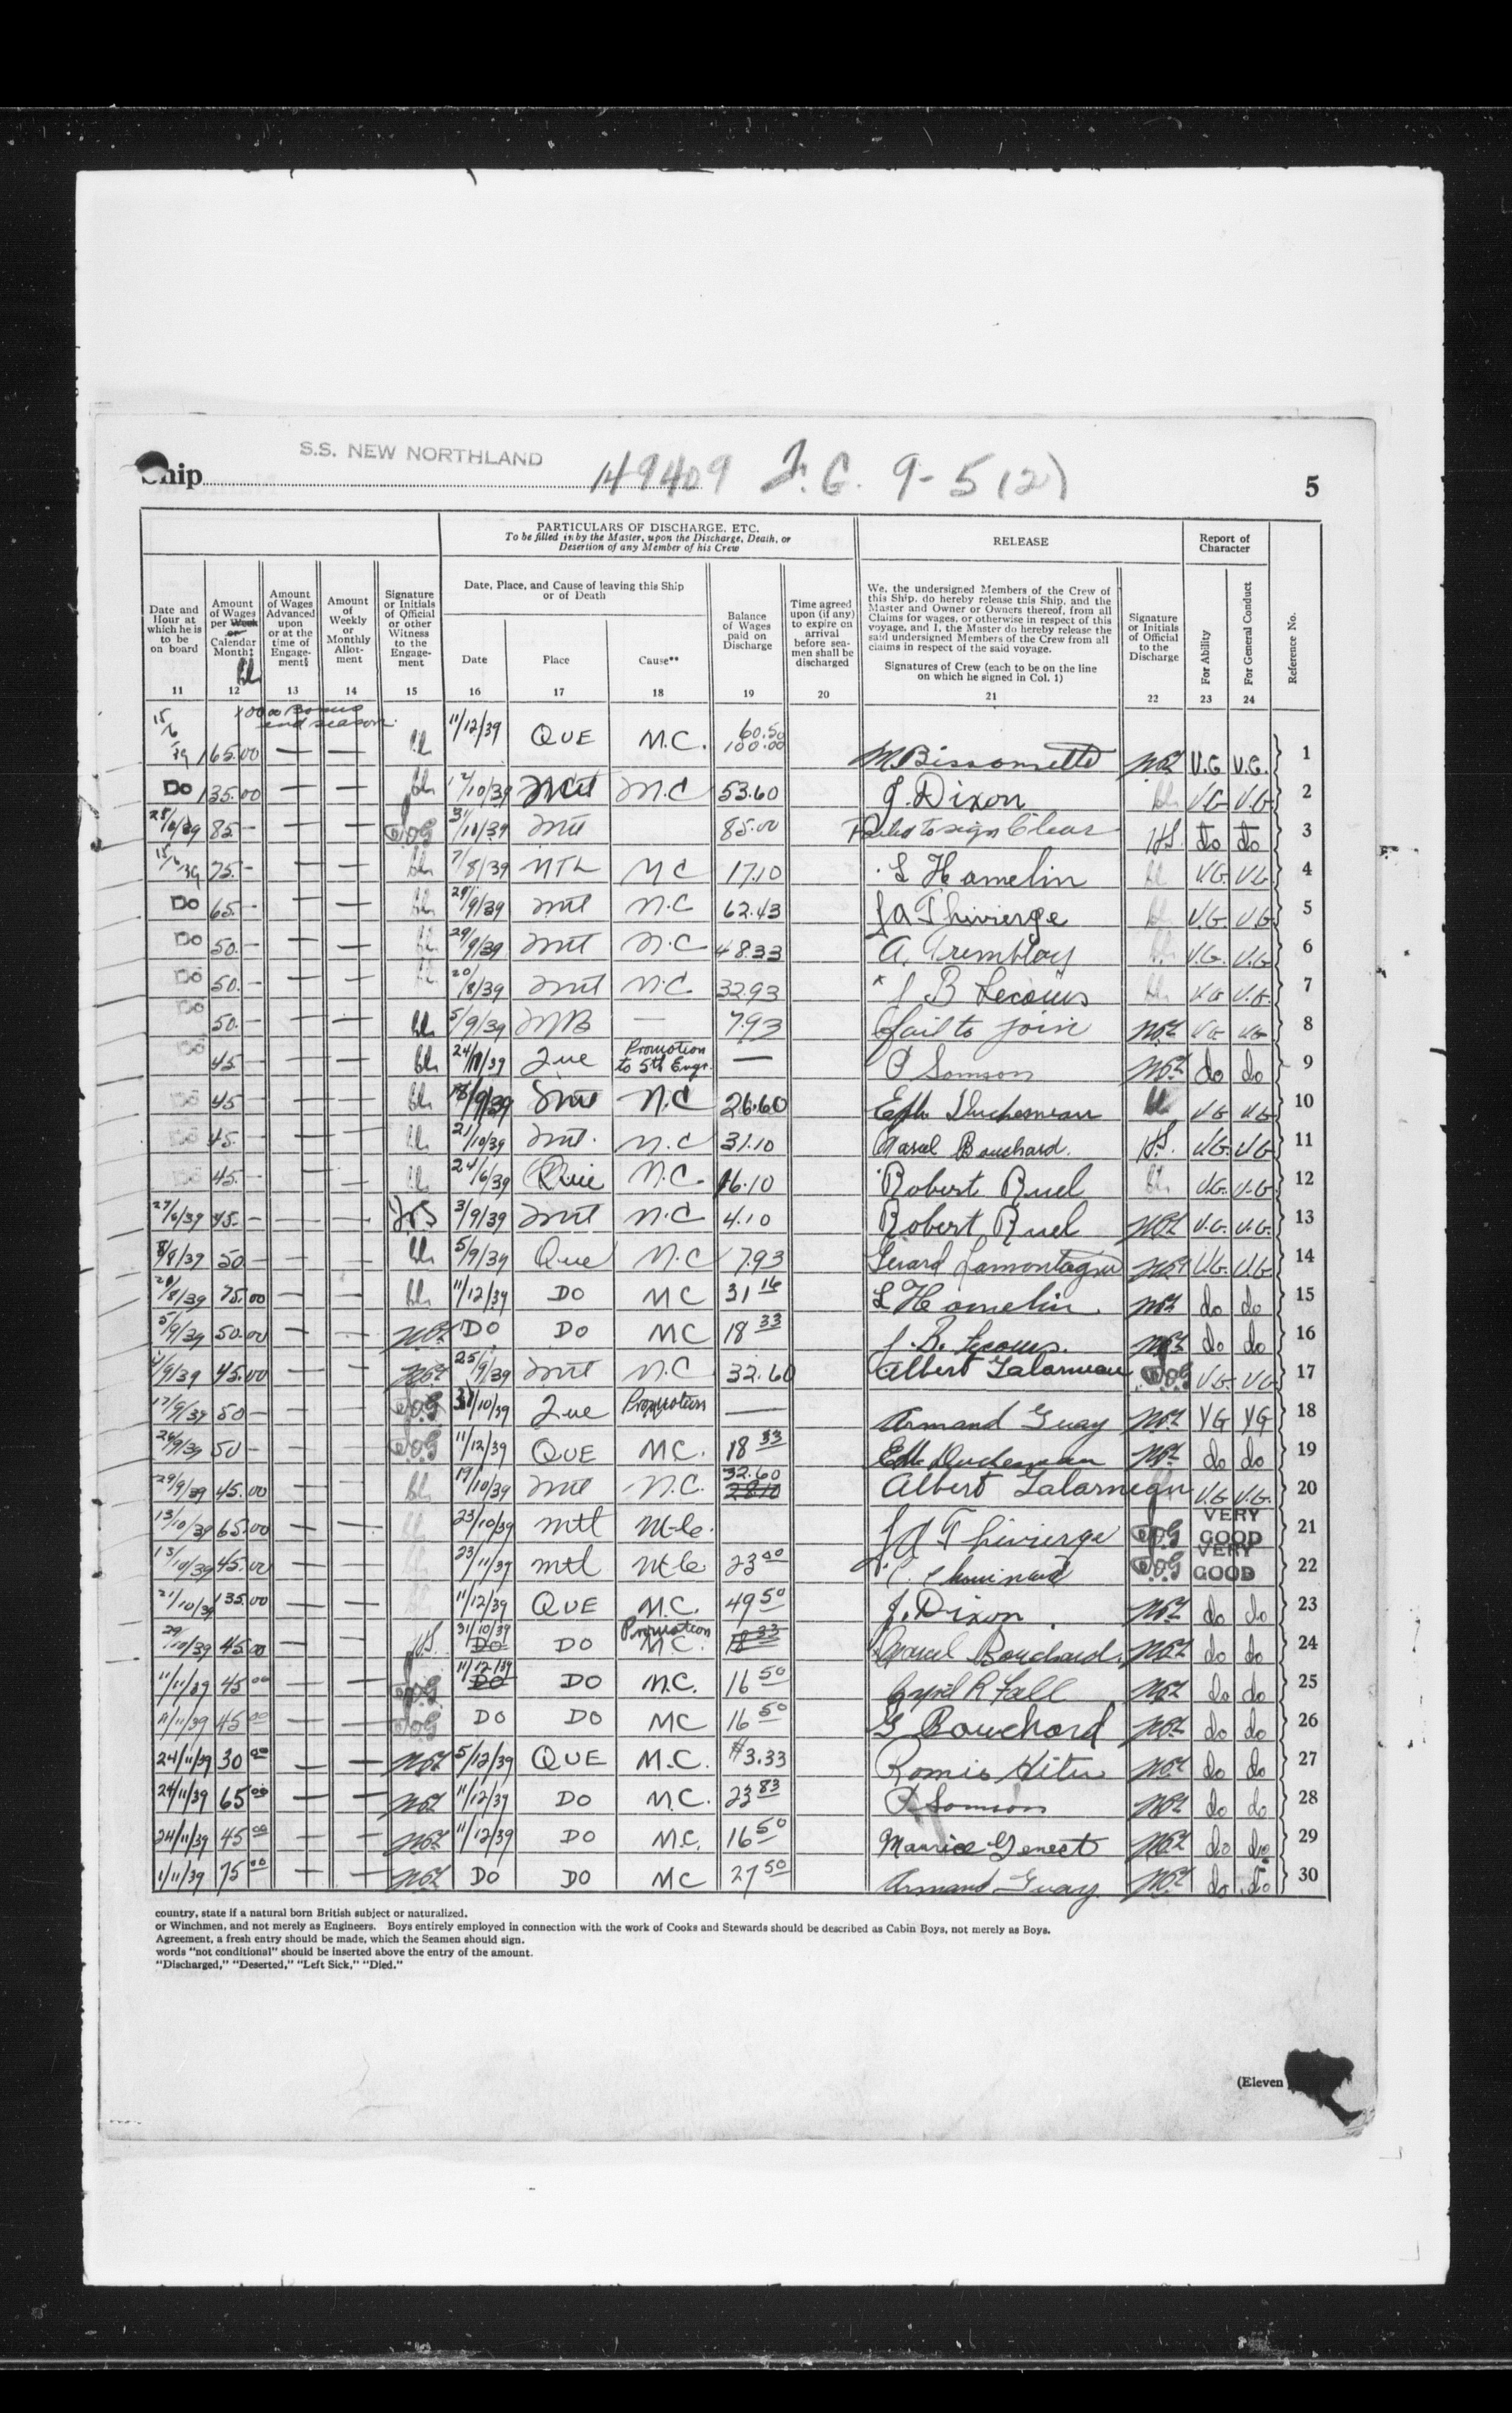 S.S. NEW NORTHLAND
Ship 149409 F.G. 9-5(2) 5
PARTICULARS OF DISCHARGE, ETC.
To be filled in by the Master, upon the Discharge, Death, or
Desertion of any Member of his Crew
RELEASE
Report of
Character
Date and
Hour at
which he is
to be
on board
Amount
of Wages
per Week
or
Calendar
Month‡
Amount
of Wages
Advanced
upon
or at the
time of
Engage-
ment§
Amount
of
Weekly
or
Monthly
Allot-
ment
Signature
or Initials
of Official
or other
Witness
to the
Engage-
ment
Date, Place, and Cause of leaving this Ship
or of Death
Date Place Cause**
Balance
of Wages
paid on
Discharge
Time agreed
upon (if any)
to expire on
arrival
before sea-
men shall be
discharged
We, the undersigned Members of the Crew of
this Ship, do hereby release this Ship, and the
Master and Owner or Owners thereof, from all
Claims for wages, or otherwise in respect of this
voyage, and I, the Master do hereby release the
said undersigned Members of the Crew from all
claims in respect of the said voyage.
Signatures of Crew (each to be on the line
on which he signed in Col. 1)
Signature
or Initials
of Official
to the
Discharge
For Ability
For General Conduct
Reference No.
11 12 13 14 15 16 17 18 19 20 21 22 23 24
100.00 Bonus
end season
15/6/39 165.00 — — 11/12/39 QUE M.C. 60.50 100.00 M. Bissonnette V.G V.G. 1
Do 135.00 — — 12/10/39 Mtl M.C 53.60 J. Dixon V.G V.G 2
28/6/39 85 — — — J.O.G 31/10/39 Mtl 85.00 Failed to sign Clear H.S. do do 3
15/6/39 75.— — — 7/8/39 MTL M C 17.10 L Hamelin V.G. V.G 4
Do 65.— — — 29/9/39 Mtl M.C 62.43 J A Thivierge V.G. V.G 5
Do 50.— — — 29/9/39 Mtl M.C 48.33 A. Tremblay V.G. V.G 6
Do 50.— — — 20/8/39 Mtl M.C. 32.93 J B Lecours V.G V.G. 7
Do 50.— — — 5/9/39 — 7.93 fail to join V.G V.G 8
Do 45 — — — 24/11/39 Que Promotion to 5th Engr. — P Samson do do 9
Do 45 — — — 18/9/39 Mtl M.C 26.60 Eph. Duchesneau V G V G 10
Do 45.— — — 21/10/39 Mtl. M.C 31.10 Marcel Bouchard. H.S. V.G. V G 11
Do 45.— — — 24/6/39 Que M.C. 16.10 Robert Ruel V.G. V.G 12
27/6/39 45.— — — 3/9/39 Mtl M.C 4.10 Robert Ruel V.G. V.G. 13
8/8/39 50 — — — 5/9/39 Que M.C 7.93 Gerard Lamontagne V.G. V.G. 14
28/8/39 75.00 — — 11/12/39 DO MC 31 16 L Hamelin. do do 15
5/9/39 50.00 — — DO DO MC 18 33 J. B. Lecours. do do 16
4/9/39 45.00 — — 25/9/39 Mtl M.C 32.60 Albert Galarneau J.O.G V.G. V G 17
17/9/39 50 — — — J.O.G 31/10/39 Que Promotion — Armand Guay V G V G 18
26/9/39 50 — — — J.O.G 11/12/39 QUE M.C. 18 33 Eph. Duchesneau do do 19
29/9/39 45.00 — — 19/10/39 Mtl M.C. 32.60 28.10 Albert Galarneau V.G V.G. 20
13/10/39 65.00 — — 23/10/39 mtl M.C. J A Thivierge J.O.G VERY GOOD 21
13/10/39 45.00 — — 23/11/39 mtl M.C. 23 00 Chouinard J.O.G VERY GOOD 22
21/10/39 135.00 — — 11/12/39 QUE M.C. 49 50 J. Dixon do do 23
29/10/39 45.00 — — H.S. 31/10/39 DO DO Promotion M.C. 18 33 Marcel Bouchard. do do 24
11/11/39 45 00 — — J.O.G 11/12/39 DO DO M.C. 16 50 Cyril R Fall do do 25
11/11/39 45 00 — — J.O.G DO DO MC 16 50 G Bouchard do do 26
24/11/39 30 00 — — 5/12/39 QUE M.C. $3.33 do do 27
24/11/39 65 00 — — 11/12/39 DO M.C. 23 83 P Samson do do 28
24/11/39 45 00 — — 11/12/39 DO M.C. 16 50 Maurice Genest do do 29
1/11/39 75 00 — — DO DO MC 27 50 Armand Guay do do 30
country, state if a natural born British subject or naturalized.
or Winchmen, and not merely as Engineers. Boys entirely employed in connection with the work of Cooks and Stewards should be described as Cabin Boys, not merely as Boys.
Agreement, a fresh entry should be made, which the Seamen should sign.
words "not conditional" should be inserted above the entry of the amount.
"Discharged," "Deserted," "Left Sick," "Died."
(Eleven